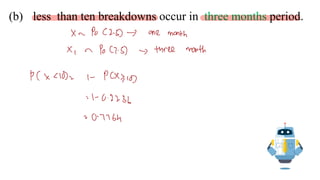 (b) less than ten breakdowns occur in three months period.
X ~ Po (2.5) → one month
X₁ ~ Po (7.5) → three month
P( X <10) = 1 - P(X ≥ 10)
= 1 - 0.2236
= 0.7764